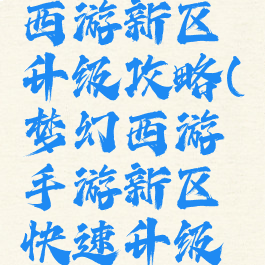 西游新区
升级攻略(
梦幻西游
手游新区
快速升级